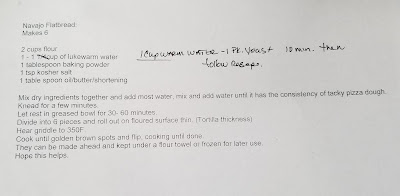 Navajo Flatbread:
Makes 6
2 cups flour
1 - 1 cup of lukewarm water
1 tablespoon baking powder
1 tsp kosher salt
1 table spoon oil/butter/shortening
1 cup warm water - 1 pk. yeast 10 min. then
follow recipe.
Mix dry ingredients together and add most water, mix and add water until it has the consistency of tacky pizza dough.
Knead for a few minutes.
Let rest in greased bowl for 30- 60 minutes.
Divide into 6 pieces and roll out on floured surface thin, (Tortilla thickness)
Hear griddle to 350F
Cook until golden brown spots and flip, cooking until done.
They can be made ahead and kept under a flour towel or frozen for later use.
Hope this helps.